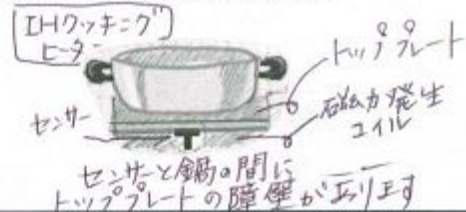 IHクッキング
ヒーター
トッププレート
センサー
磁力発生
コイル
センサーと鍋の間に
トッププレートの障壁があります